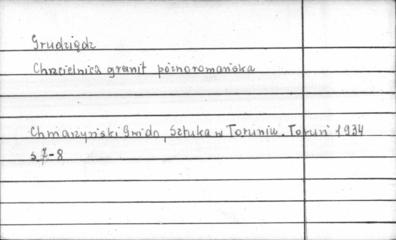 Grudziądz
Chrzcielnica granit późnoromańska
Chmarzyński Gwido, Sztuka w Toruniu. Toruń 1934
s 7-8